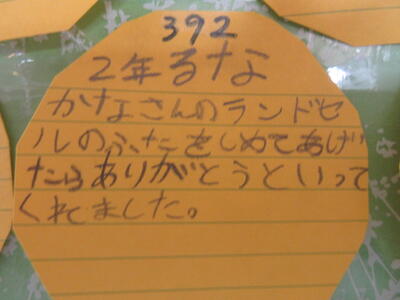 392
2年るな
かなさんのランドセ
ルのふたをしめてあげ
たらありがとうといって
くれました。